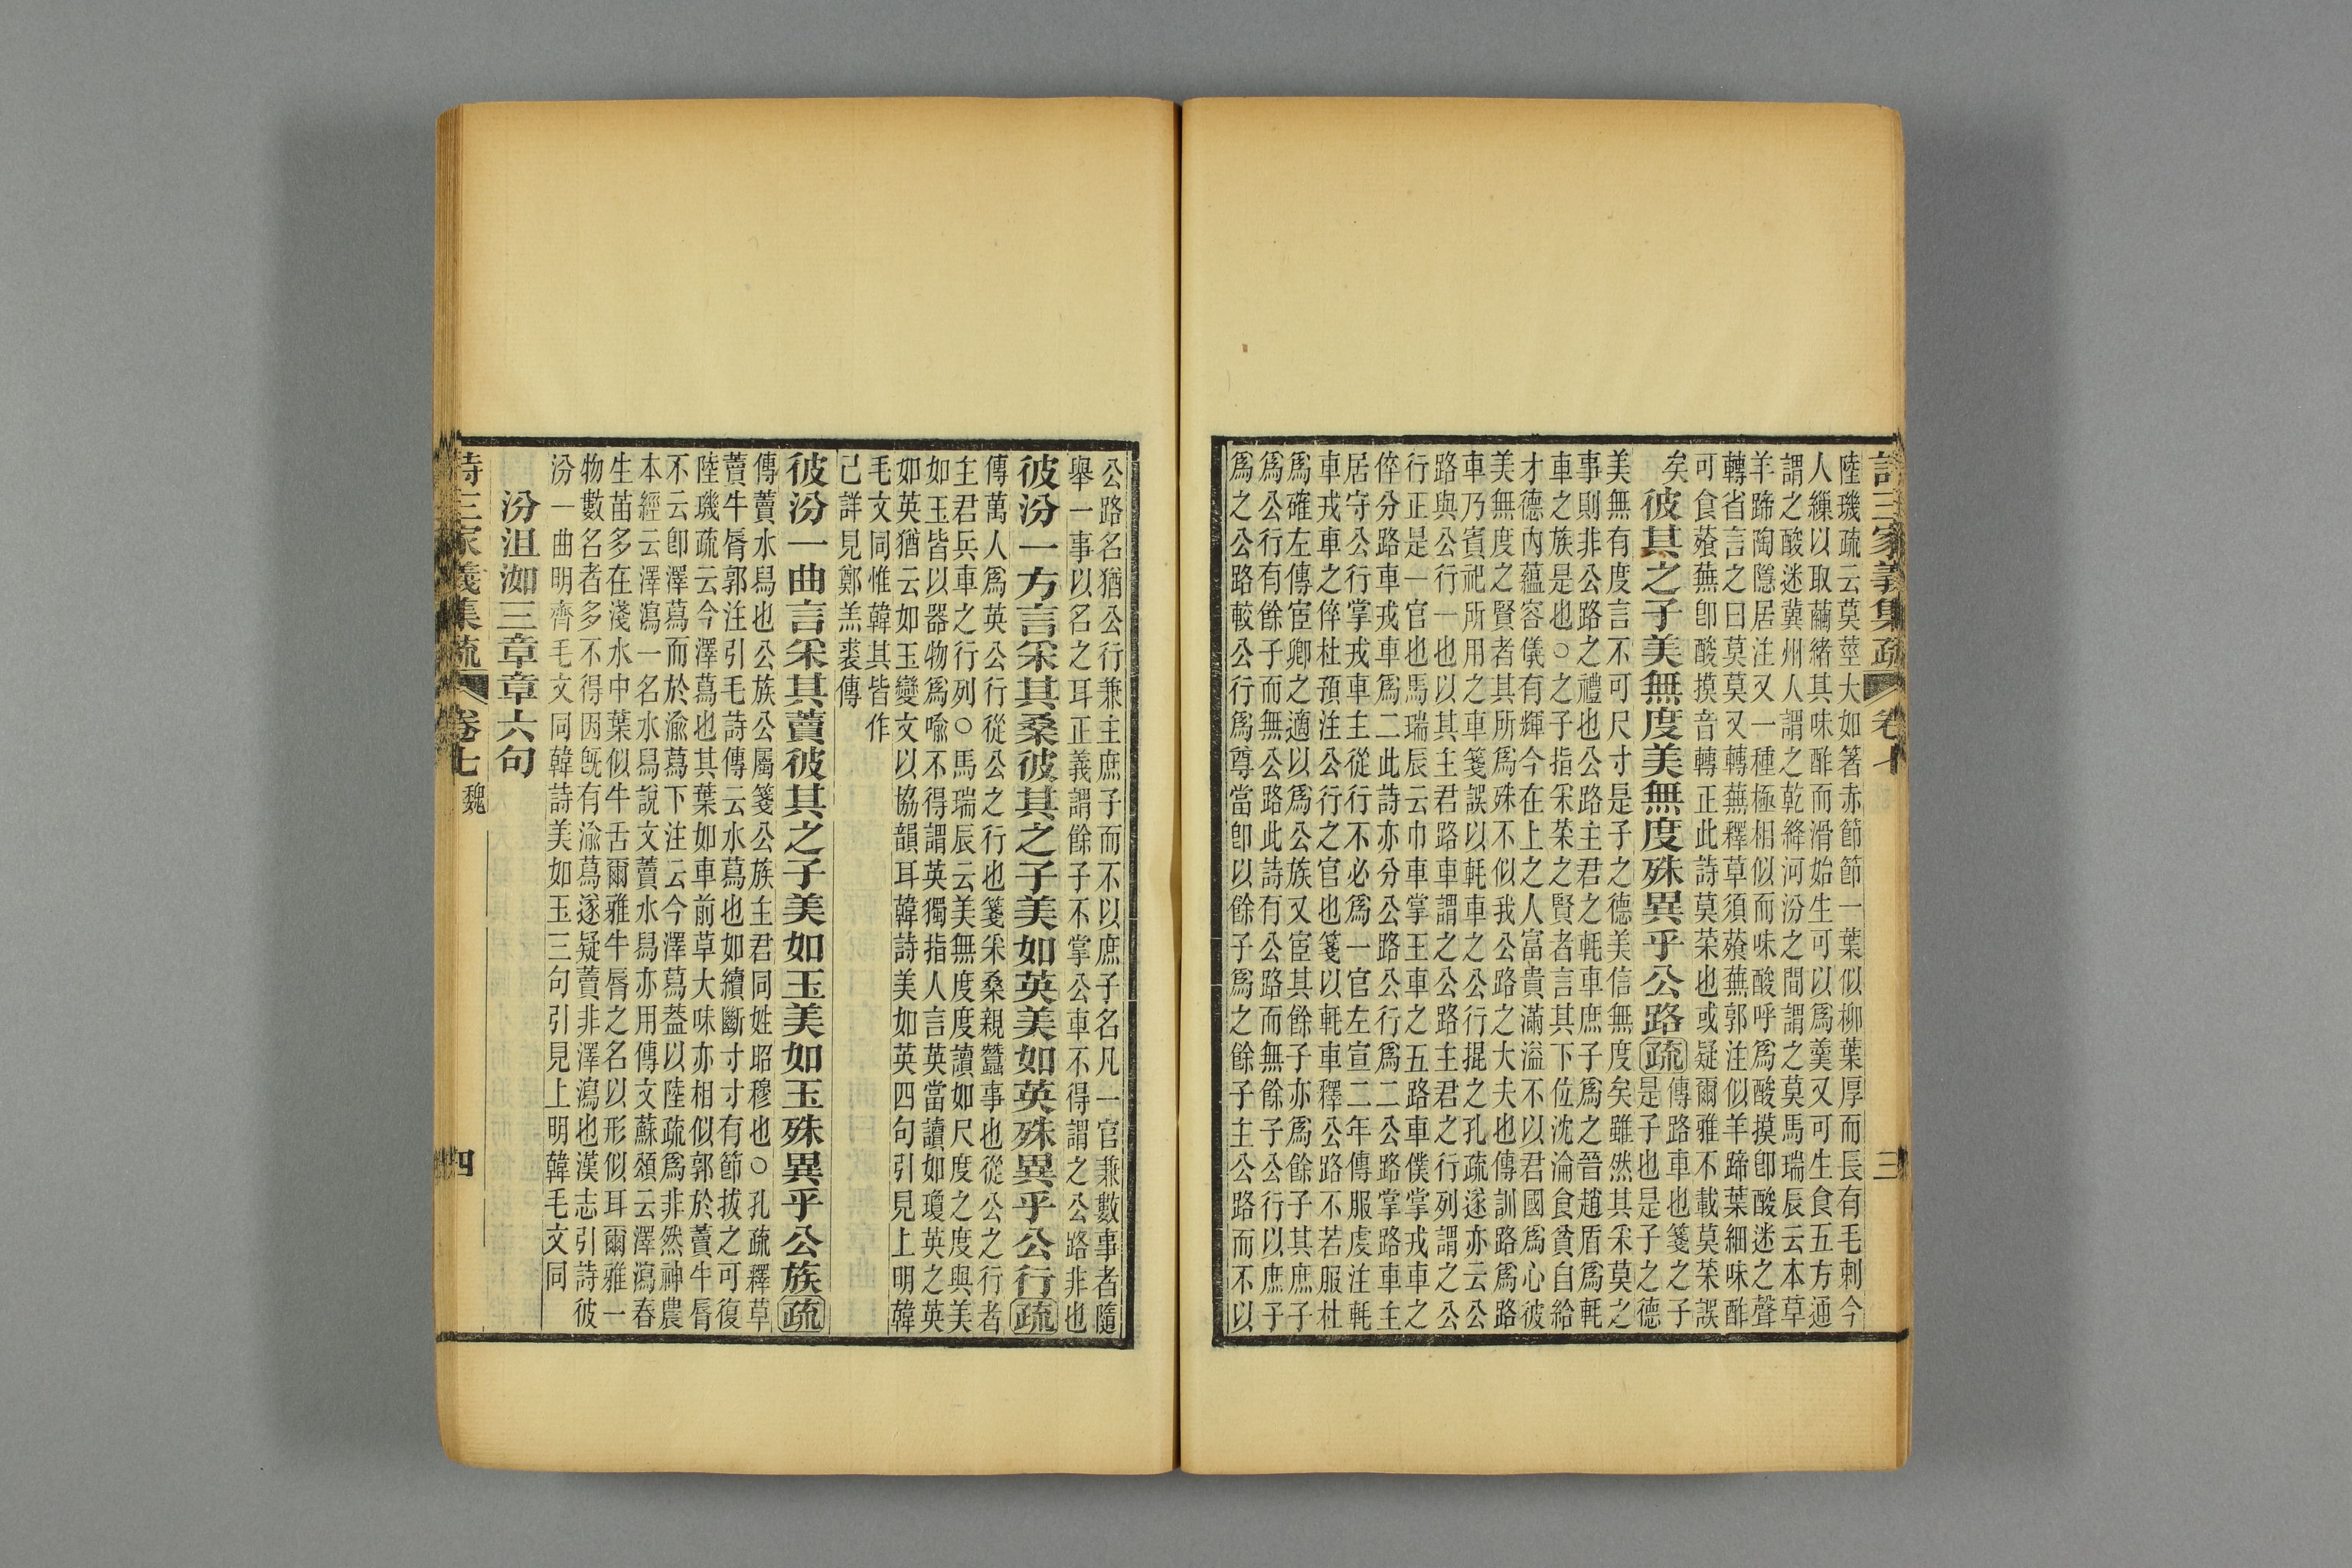 詩三家義集疏 卷七 三
陸璣疏云莫莖大如箸赤節節一葉似柳葉厚而長有毛刺今
人繅以取繭緒其味酢而滑始生可以爲羹又可生食五方通
謂之酸迷冀州人謂之乾絳河汾之間謂之莫馬瑞辰云本草
羊蹄陶隱居注又一種極相似而味酸呼爲酸摸卽酸迷之聲
轉省言之曰莫莫又轉蕪釋草須薞蕪郭注似羊蹄葉細味酢
可食薞蕪卽酸摸音轉正此詩莫菜也或疑爾雅不載莫菜誤
矣
彼其之子美無度美無度殊異乎公路疏
傳路車也箋之子
是子也是子之德
美無有度言不可尺寸是子之德美信無度矣雖然其采莫之
事則非公路之禮也公路主君之軞車庶子爲之晉趙盾爲軞
車之族是也○之子指采菜之賢者言其下位沈淪食貧自給
才德內蘊容儀有輝今在上之人富貴滿溢不以君國爲心彼
美無度之賢者其所爲殊不似我公路之大夫也傳訓路爲路
車乃賓祀所用之車箋誤以軞車之公行掍之孔疏遂亦云公
路與公行一也以其主君路車謂之公路主君之行列謂之公
行正是一官也馬瑞辰云巾車掌王車之五路車僕掌戎車之
倅分路車戎車爲二此詩亦分公路公行爲二公路掌路車主
居守公行掌戎車主從行不必爲一官左宣二年傳服虔注軞
車戎車之倅杜預注公行之官也箋以軞車釋公路不若服杜
爲確左傳宦卿之適以爲公族又宦其餘子亦爲餘子其庶子
爲公行有餘子而無公路此詩有公路而無餘子公行以庶子
爲之公路較公行爲尊當卽以餘子爲之餘子主公路而不以
公路名猶公行兼主庶子而不以庶子名凡一官兼數事者隨
舉一事以名之耳正義謂餘子不掌公車不得謂之公路非也
彼汾一方言采其桑彼其之子美如英美如英殊異乎公行疏
傳萬人爲英公行從公之行也箋采桑親蠶事也從公之行者
主君兵車之行列○馬瑞辰云美無度度讀如尺度之度與美
如玉皆以器物爲喩不得謂英獨指人言英當讀如瓊英之英
如英猶云如玉變文以協韻耳韓詩美如英四句引見上明韓
毛文同惟韓其皆作
己詳見鄭羔裘傳
彼汾一曲言采其藚彼其之子美如玉美如玉殊異乎公族疏
傳藚水舄也公族公屬箋公族主君同姓昭穆也○孔疏釋草
藚牛脣郭注引毛詩傳云水蕮也如續斷寸寸有節拔之可復
陸璣疏云今澤蕮也其葉如車前草大味亦相似郭於藚牛脣
不云卽澤蕮而於渝蕮下注云今澤蕮葢以陸疏爲非然神農
本經云澤瀉一名水舄說文藚水舄亦用傳文蘇頌云澤瀉春
生苗多在淺水中葉似牛舌爾雅牛脣之名以形似耳爾雅一
物數名者多不得因旣有渝蕮遂疑藚非澤瀉也漢志引詩彼
汾一曲明齊毛文同韓詩美如玉三句引見上明韓毛文同
汾沮洳三章章六句
詩三家義集疏 卷七 魏 四